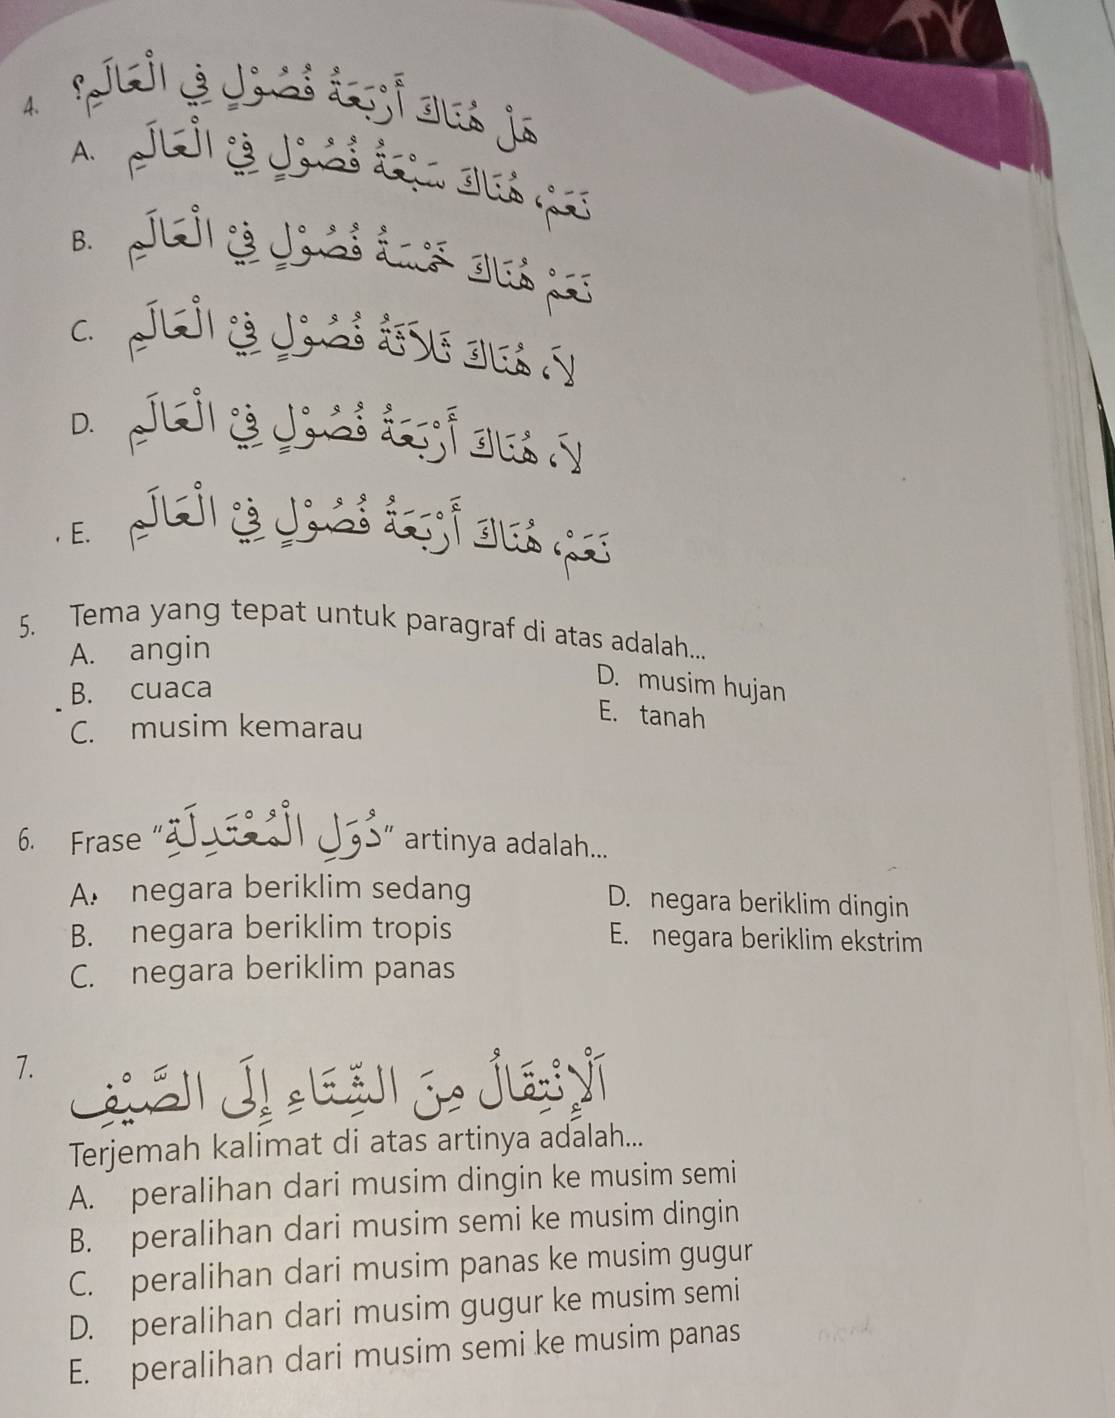 4. هَلْ هُنَاكَ أَرْبَعَةُ فُصُوْلٍ فِي الْعَالَمِ؟
A. نَعَمْ، هُنَاكَ سَبْعَةُ فُصُوْلٍ فِيْ الْعَالَمِ
B. نَعَمْ هُنَاكَ خَمْسَةُ فُصُوْلٍ فِيْ الْعَالَمِ
C. لَا، هُنَاكَ ثَلَاثَةُ فُصُوْلٍ فِيْ الْعَالَمِ
D. لَا، هُنَاكَ أَرْبَعَةُ فُصُوْلٍ فِيْ الْعَالَمِ
E. نَعَمْ، هُنَاكَ أَرْبَعَةُ فُصُوْلٍ فِيْ الْعَالَمِ
5. Tema yang tepat untuk paragraf di atas adalah...
A. angin
B. cuaca
C. musim kemarau
D. musim hujan
E. tanah
6. Frase "دُوَلِ الْمُعْتَدِلَةِ" artinya adalah...
A. negara beriklim sedang
B. negara beriklim tropis
C. negara beriklim panas
D. negara beriklim dingin
E. negara beriklim ekstrim
7. اَلْإِنْتِقَالُ مِنَ الشِّتَاءِ إِلَى الصَّيْفِ
Terjemah kalimat di atas artinya adalah...
A. peralihan dari musim dingin ke musim semi
B. peralihan dari musim semi ke musim dingin
C. peralihan dari musim panas ke musim gugur
D. peralihan dari musim gugur ke musim semi
E. peralihan dari musim semi ke musim panas